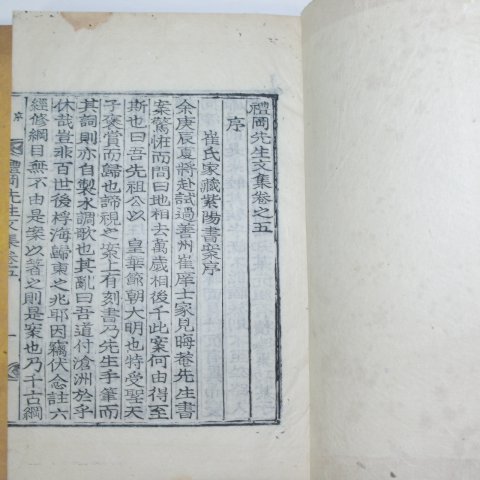 禮岡先生文集卷之五
序
崔氏家藏紫陽書案序
余庚辰夏將赴試過善州崔庠士家見晦菴先生書
案驚惟而問曰地相去萬歲相後千此案何由得至
斯也曰吾先祖公以 皇華節朝大明也特受聖天
子褒賞而歸也諦視之案上有刻書乃先生手筆而
其詞則亦自製水調歌也其亂曰吾道付滄洲於乎
休哉豈非百世後桴海歸東之兆耶因竊伏念註六
經修綱目無不由是案以著之則是案也乃千古綱
序
禮岡先生文集 卷五
一